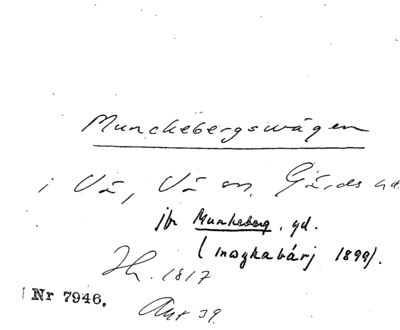 Munckebergswägen
i Vä, Vä sn, Gärds hd.
jfr Munkeberg, gd.
(mozkabärj 1899).
Jh. 1817
Nr 7946.
Akt 39